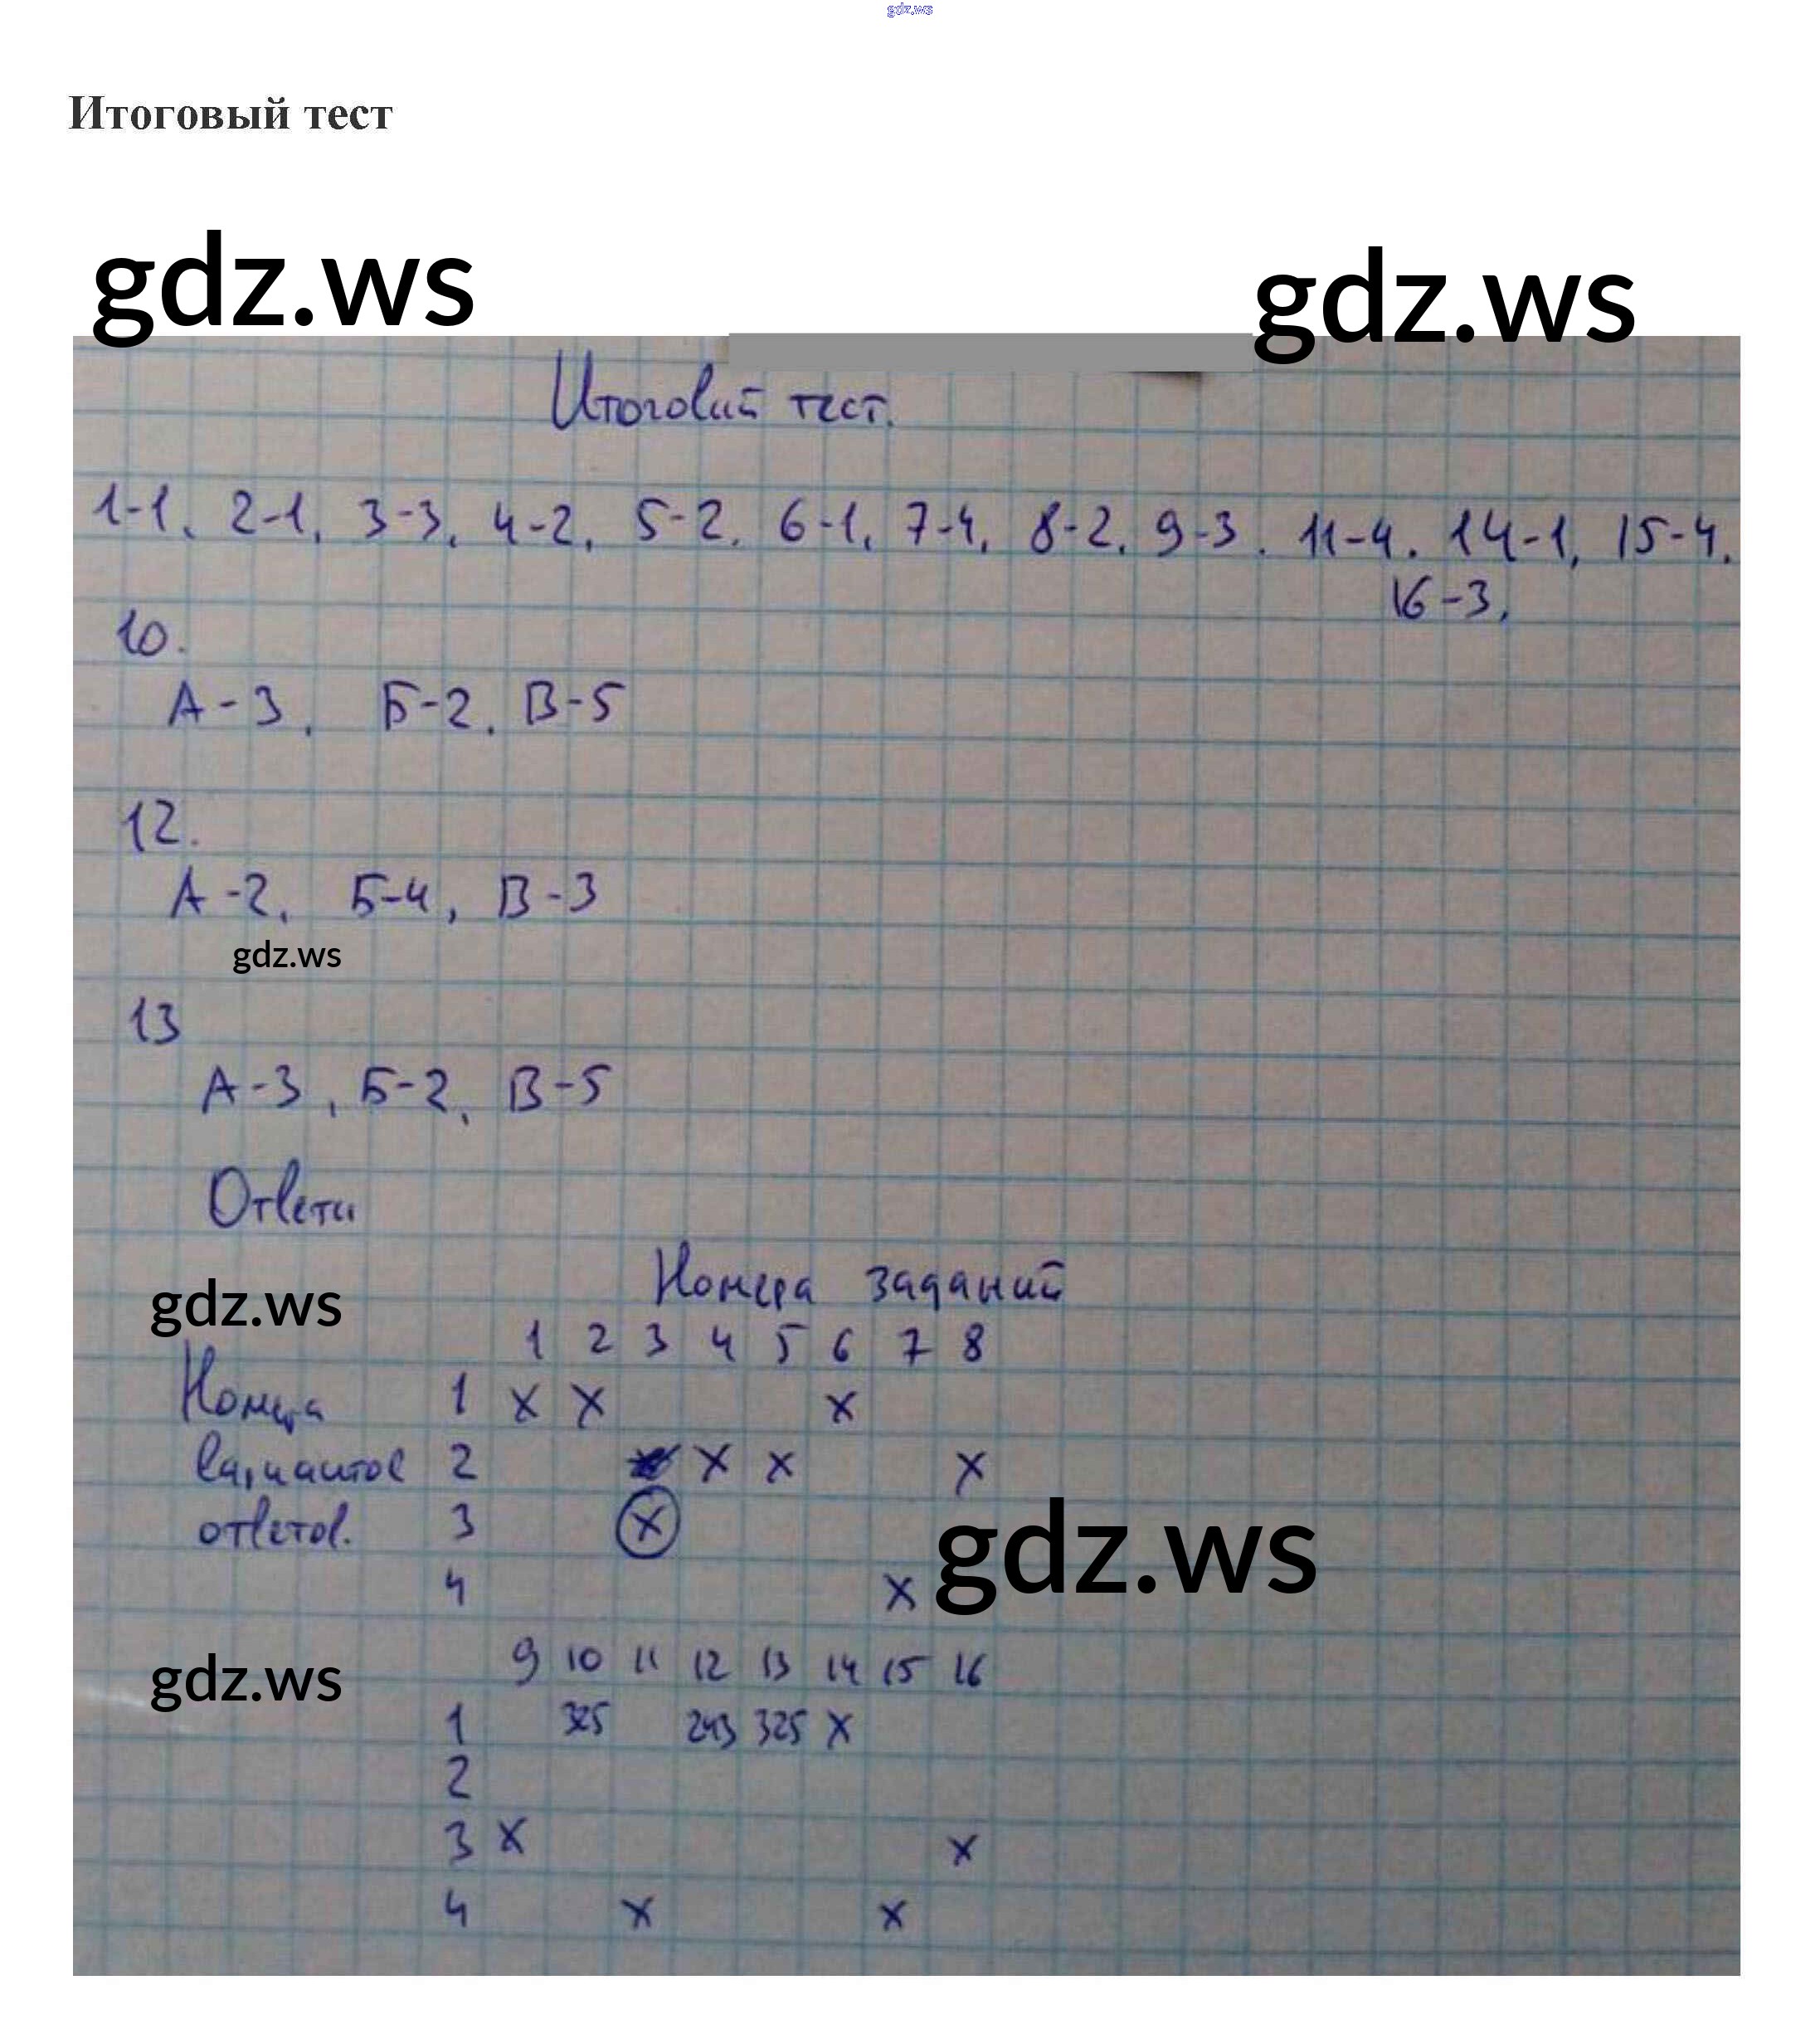 gdz.ws
Итоговый тест
gdz.ws gdz.ws
Итоговий тест.
1-1, 2-1, 3-3, 4-2, 5-2, 6-1, 7-4, 8-2, 9-3. 11-4. 14-1, 15-4.
16-3,
10.
А-3, Б-2, В-5
12.
А-2, Б-4, В-3
gdz.ws
13
А-3, Б-2, В-5
Ответи
Номера заданий
gdz.ws
1 2 3 4 5 6 7 8
Номера 1 х х х
вариантов 2 х х х
ответов. 3 х
gdz.ws
4 х
9 10 11 12 13 14 15 16
gdz.ws
1 325 243 325 х
2
3 х х
4 х х